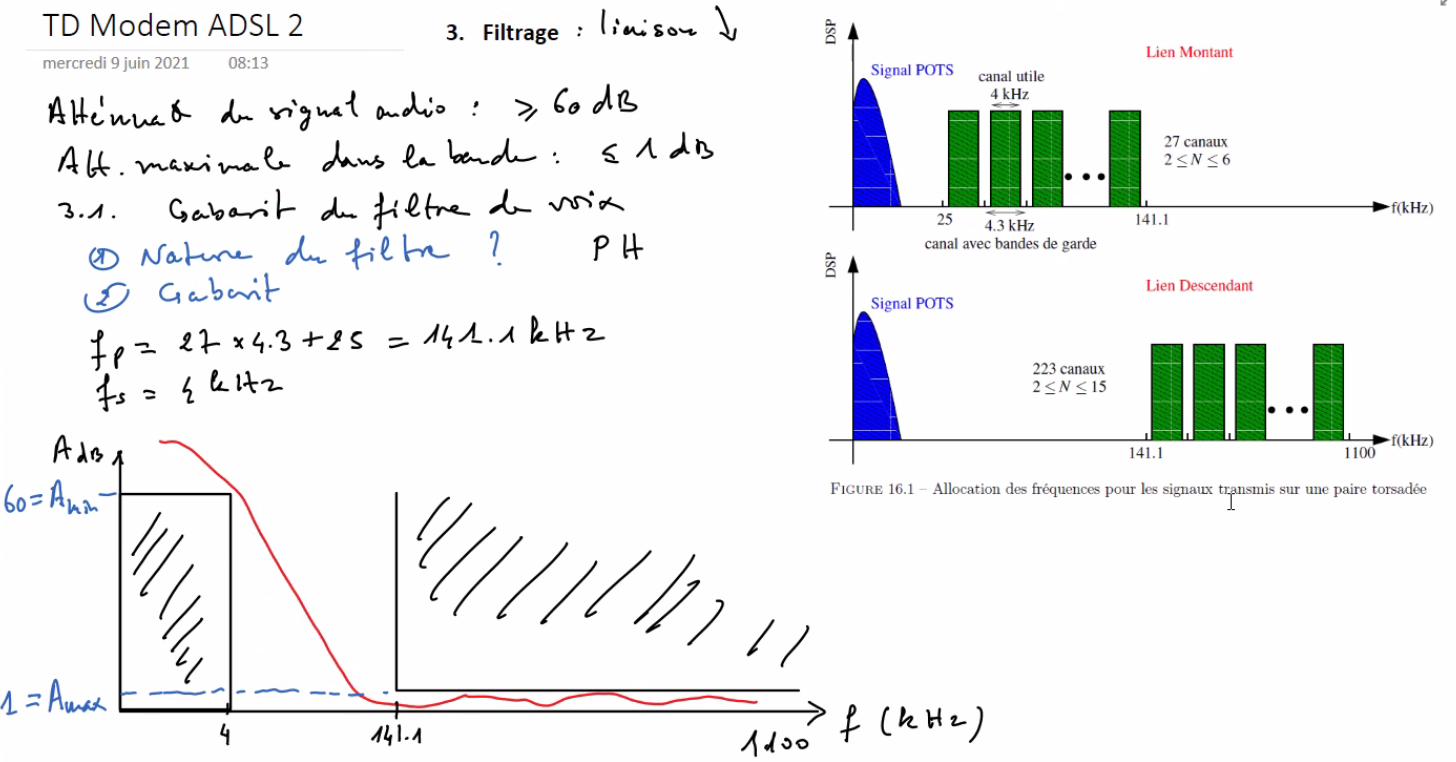 TD Modem ADSL 2
mercredi 9 juin 2021 08:13
3. Filtrage : liaison ↓
Atténuat° du signal audio : ⩾ 60 dB
Att. maximale dans la bande : ≤ 1 dB
3.1. Gabarit du filtre de voix
① Nature du filtre ? PH
② Gabarit
fp = 27 × 4.3 + 25 = 141.1 kHz
fs = 4 kHz
AdB
60 = Amin
1 = Amax
4
141.1
1100
f (kHz)
DSP
Lien Montant
Signal POTS
canal utile
4 kHz
27 canaux
2 ≤ N ≤ 6
25
4.3 kHz
141.1
f(kHz)
canal avec bandes de garde
DSP
Lien Descendant
Signal POTS
223 canaux
2 ≤ N ≤ 15
141.1
1100
f(kHz)
FIGURE 16.1 – Allocation des fréquences pour les signaux transmis sur une paire torsadée